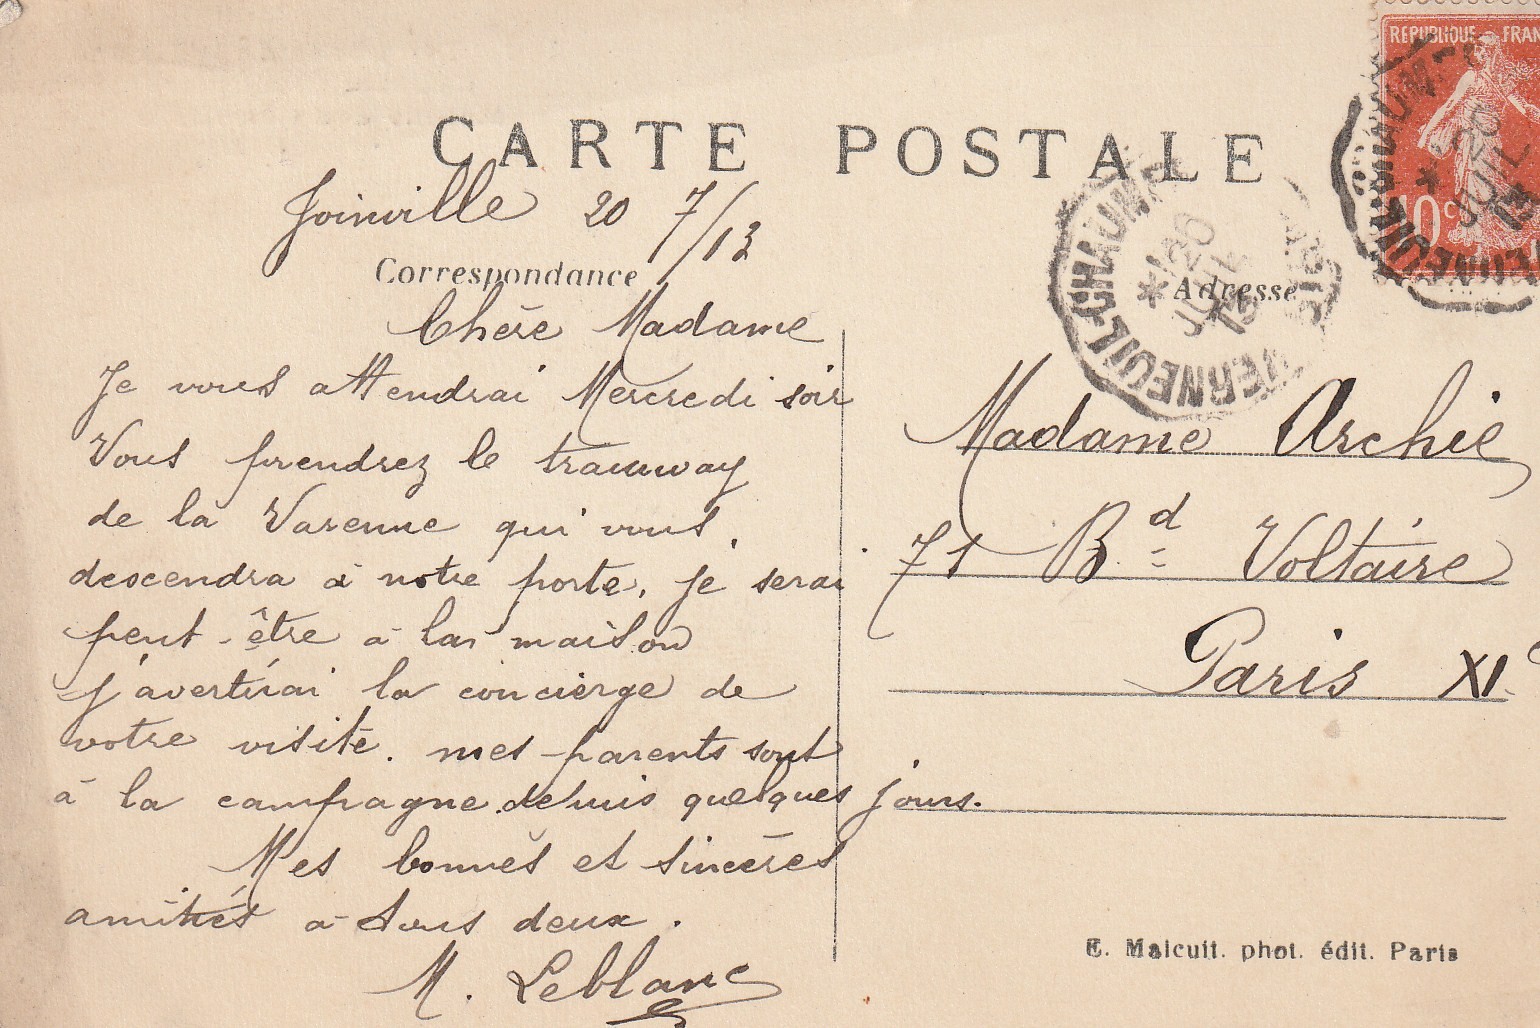 CARTE POSTALE
Joinville 20 7/13
Correspondance
Chère Madame
Je vous attendrai Mercredi soir
Vous prendrez le tramway
de la Varenne qui vous
descendra à notre porte, je serai
peut-être à la maison
j'avertirai la concierge de
votre visite. mes parents sont
à la campagne depuis quelques jours.
Mes bonnes et sincères
amitiés à tous deux.
M. Leblanc
REPUBLIQUE FRAN
10 c
VERNEUIL-CHAUM
* 20
JUIL
13
Adresse
VERNEUIL-CHAUM
* 20
JUIL
13
Madame Archie
71 Bd Voltaire
Paris XIe
E. Malcuit. phot. édit. Paris